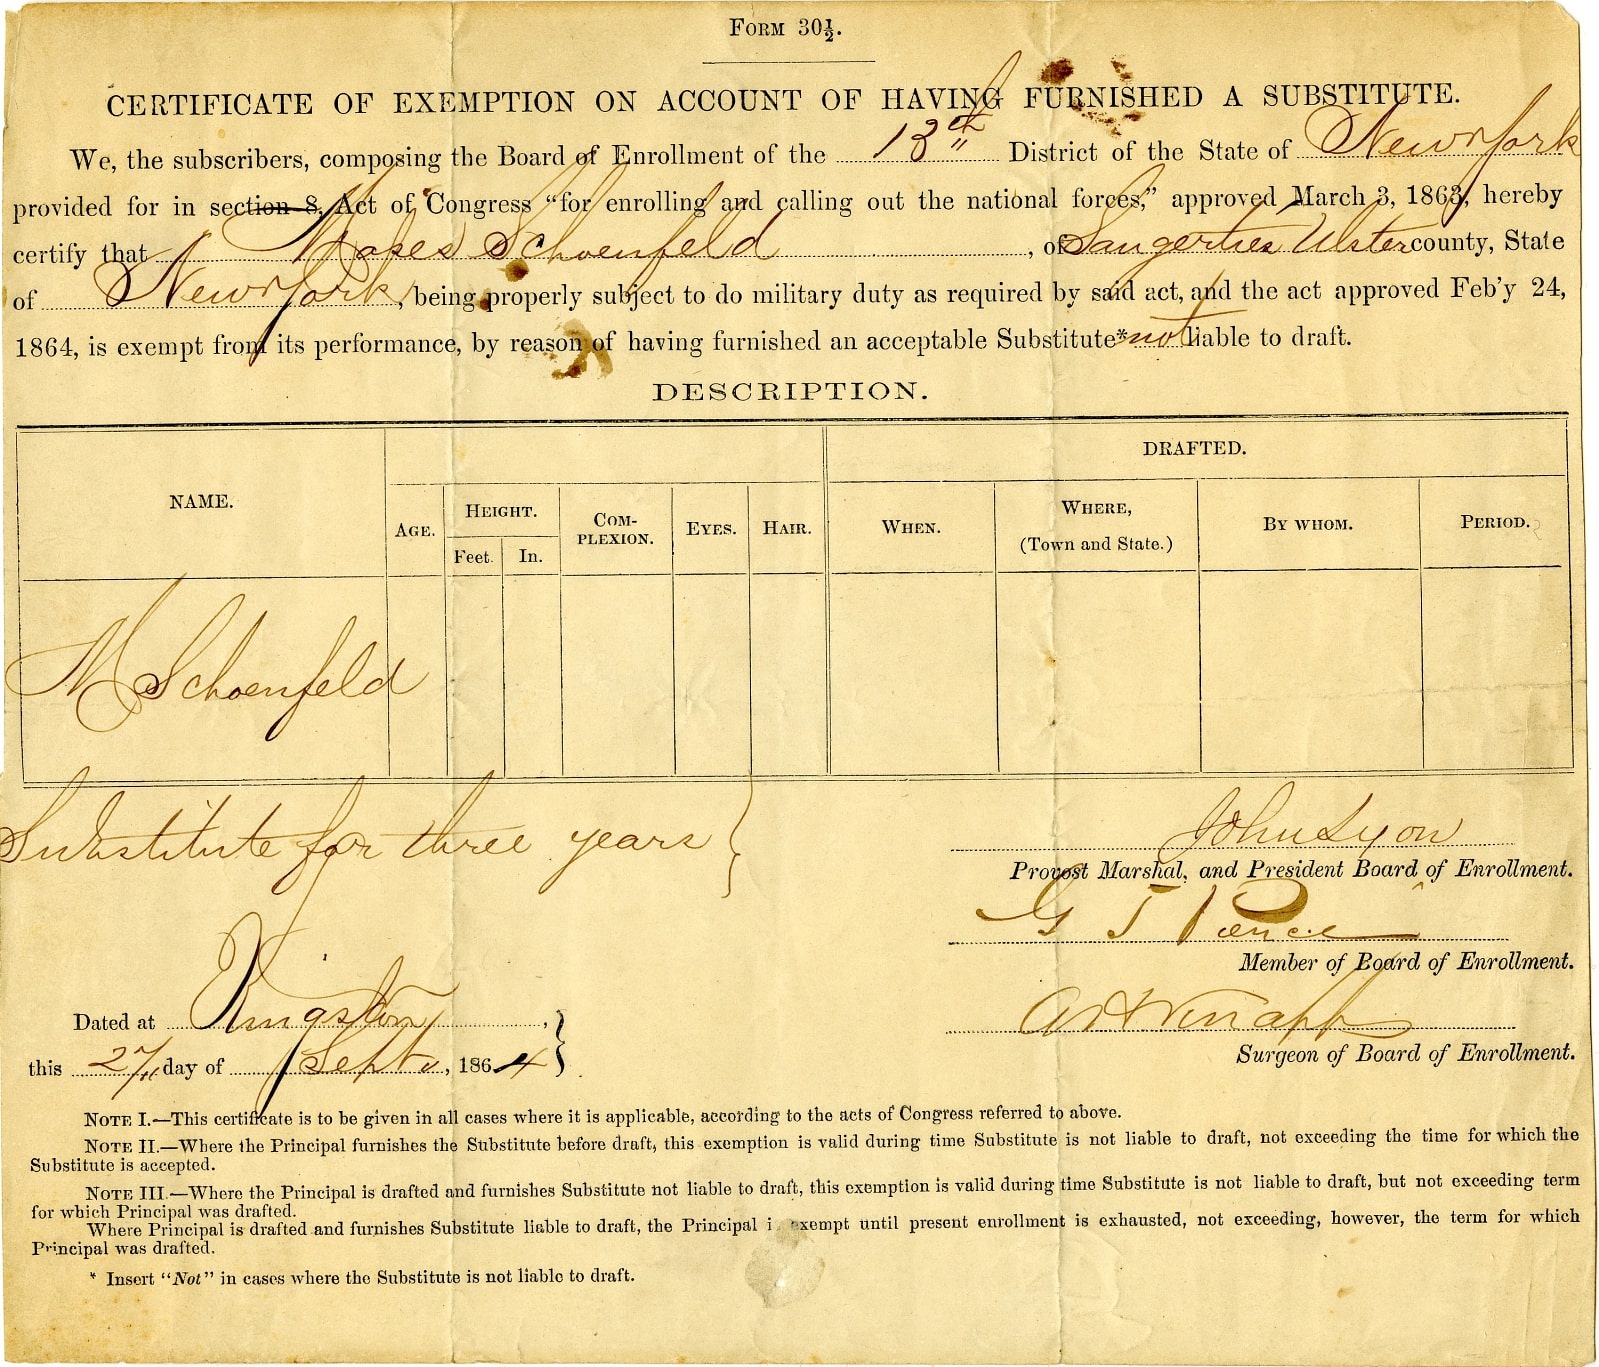 FORM 30½.
CERTIFICATE OF EXEMPTION ON ACCOUNT OF HAVING FURNISHED A SUBSTITUTE.
We, the subscribers, composing the Board of Enrollment of the 13th District of the State of New York
provided for in section 8, Act of Congress “for enrolling and calling out the national forces,” approved March 3, 1863, hereby
certify that Moses Schoenfeld, of Saugerties Ulster county, State
of New York, being properly subject to do military duty as required by said act, and the act approved Feb'y 24,
1864, is exempt from its performance, by reason of having furnished an acceptable Substitute* not liable to draft.
DESCRIPTION.
NAME.
AGE.
HEIGHT.
Feet.
In.
COM-
PLEXION.
EYES.
HAIR.
DRAFTED.
WHEN.
WHERE,
(Town and State.)
BY WHOM.
PERIOD.
M Schoenfeld
Substitute for three years }
John Lyon
Provost Marshal, and President Board of Enrollment.
G T Pierce
Member of Board of Enrollment.
Knapp
Surgeon of Board of Enrollment.
Dated at Kingston,
this 27 day of Sept, 1864 }
NOTE I.—This certificate is to be given in all cases where it is applicable, according to the acts of Congress referred to above.
NOTE II.—Where the Principal furnishes the Substitute before draft, this exemption is valid during time Substitute is not liable to draft, not exceeding the time for which the
Substitute is accepted.
NOTE III.—Where the Principal is drafted and furnishes Substitute not liable to draft, this exemption is valid during time Substitute is not liable to draft, but not exceeding term
for which Principal was drafted.
Where Principal is drafted and furnishes Substitute liable to draft, the Principal i exempt until present enrollment is exhausted, not exceeding, however, the term for which
Principal was drafted.
* Insert “Not” in cases where the Substitute is not liable to draft.